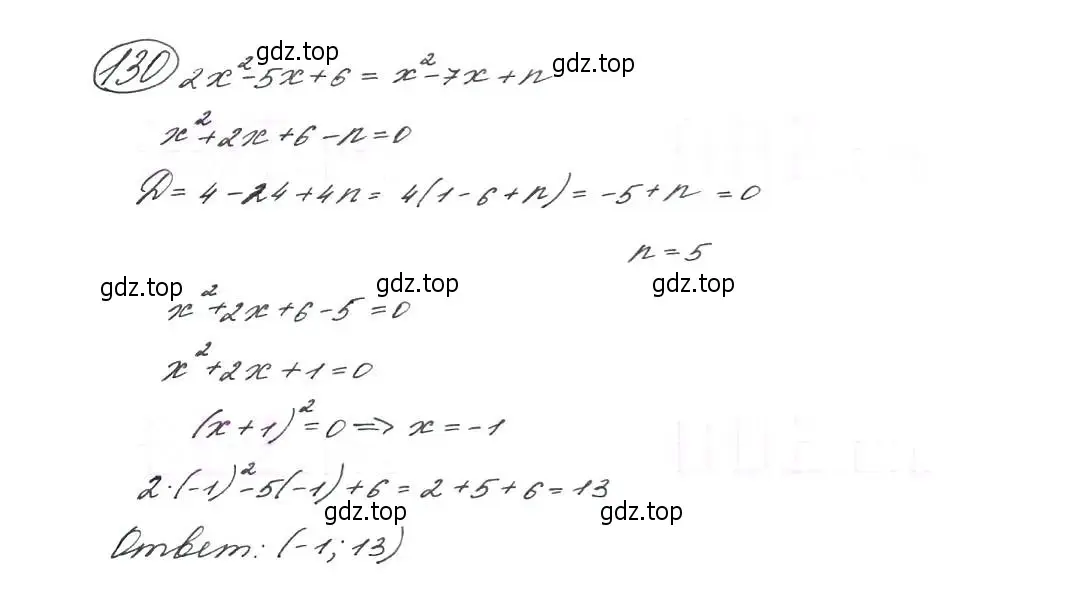 130 2x²-5x+6 = x²-7x+n gdz.top gdz.top
x²+2x+6-n=0
D=4-24+4n= 4(1-6+n)= -5+n =0
n=5
gdz.top gdz.top gdz.top
x²+2x+6-5=0
x²+2x+1=0
(x+1)²=0 => x=-1
2·(-1)²-5(-1)+6=2+5+6=13
gdz.top gdz.top
Ответ: (-1; 13)